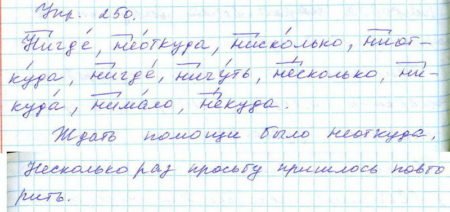 Упр. 250.
Нигде́, нео́ткуда, ниско́лько, ниот-
ку́да, нигде́, ничу́ть, не́сколько, ни-
куда́, нима́ло, не́куда.
Ждать помощи было неоткуда,
Несколько раз просьбу пришлось повто
рить.